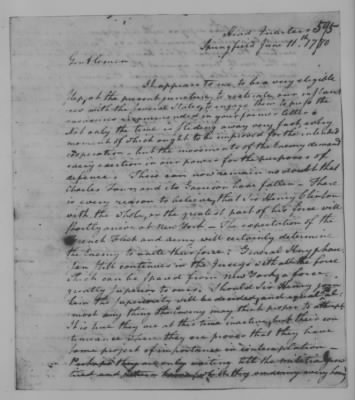 Head Quarters 595
Springfield June 11th 1780
Gentlemen
It appears to me to be a very eligible
step, at the present juncture, to reiterate our influence
with the several States, to engage them to press the
measures recommended in your former letter
Not only the time is slideing away very fast, every
moment of which ought to be improved for the intended
cooperation, but the movements of the Enemy demand
every exertion in our power for the purposes of
defence. There can now remain no doubt that
Charles Town and its Garrison have fallen – There
is every reason to believe, that Sir Henry Clinton
with the whole, or the greatest part of his force will
shortly arrive at New York – The expectation of the
French Fleet and Army will certainly determine
the Enemy to unite their force; General Knyphau
sen still continues in the Jerseys with all the force
which can be spared from New York, a force
greatly superior to ours. Should Sir Henry join
him the superiority will be decided, and equal to al
most any thing the enemy may think proper to attempt
It is true they are at this time inactive, but their con
tinuance where they are proves that they have
some project of importance in contemplation –
Perhaps they are only waiting till the militia grow
tired and